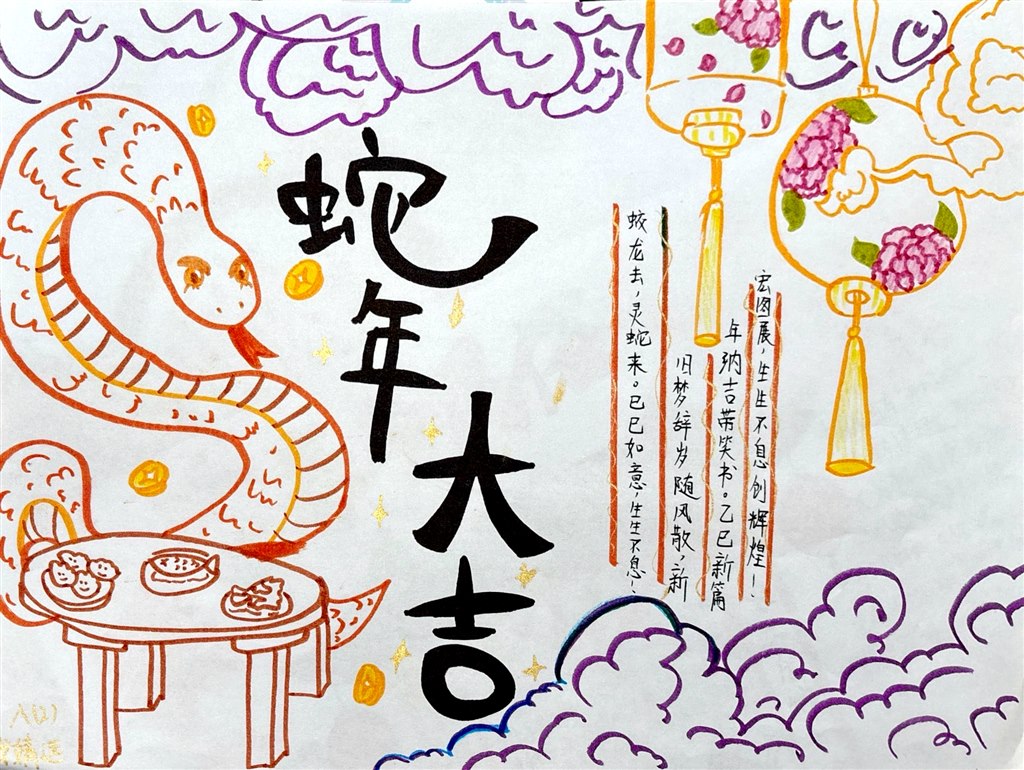 蛇年大吉
蛟龙去，灵蛇来。巳巳如意，生生不息！
旧梦辞岁随风散，新
年纳吉带笑书。乙巳新篇
宏图展，生生不息创辉煌！